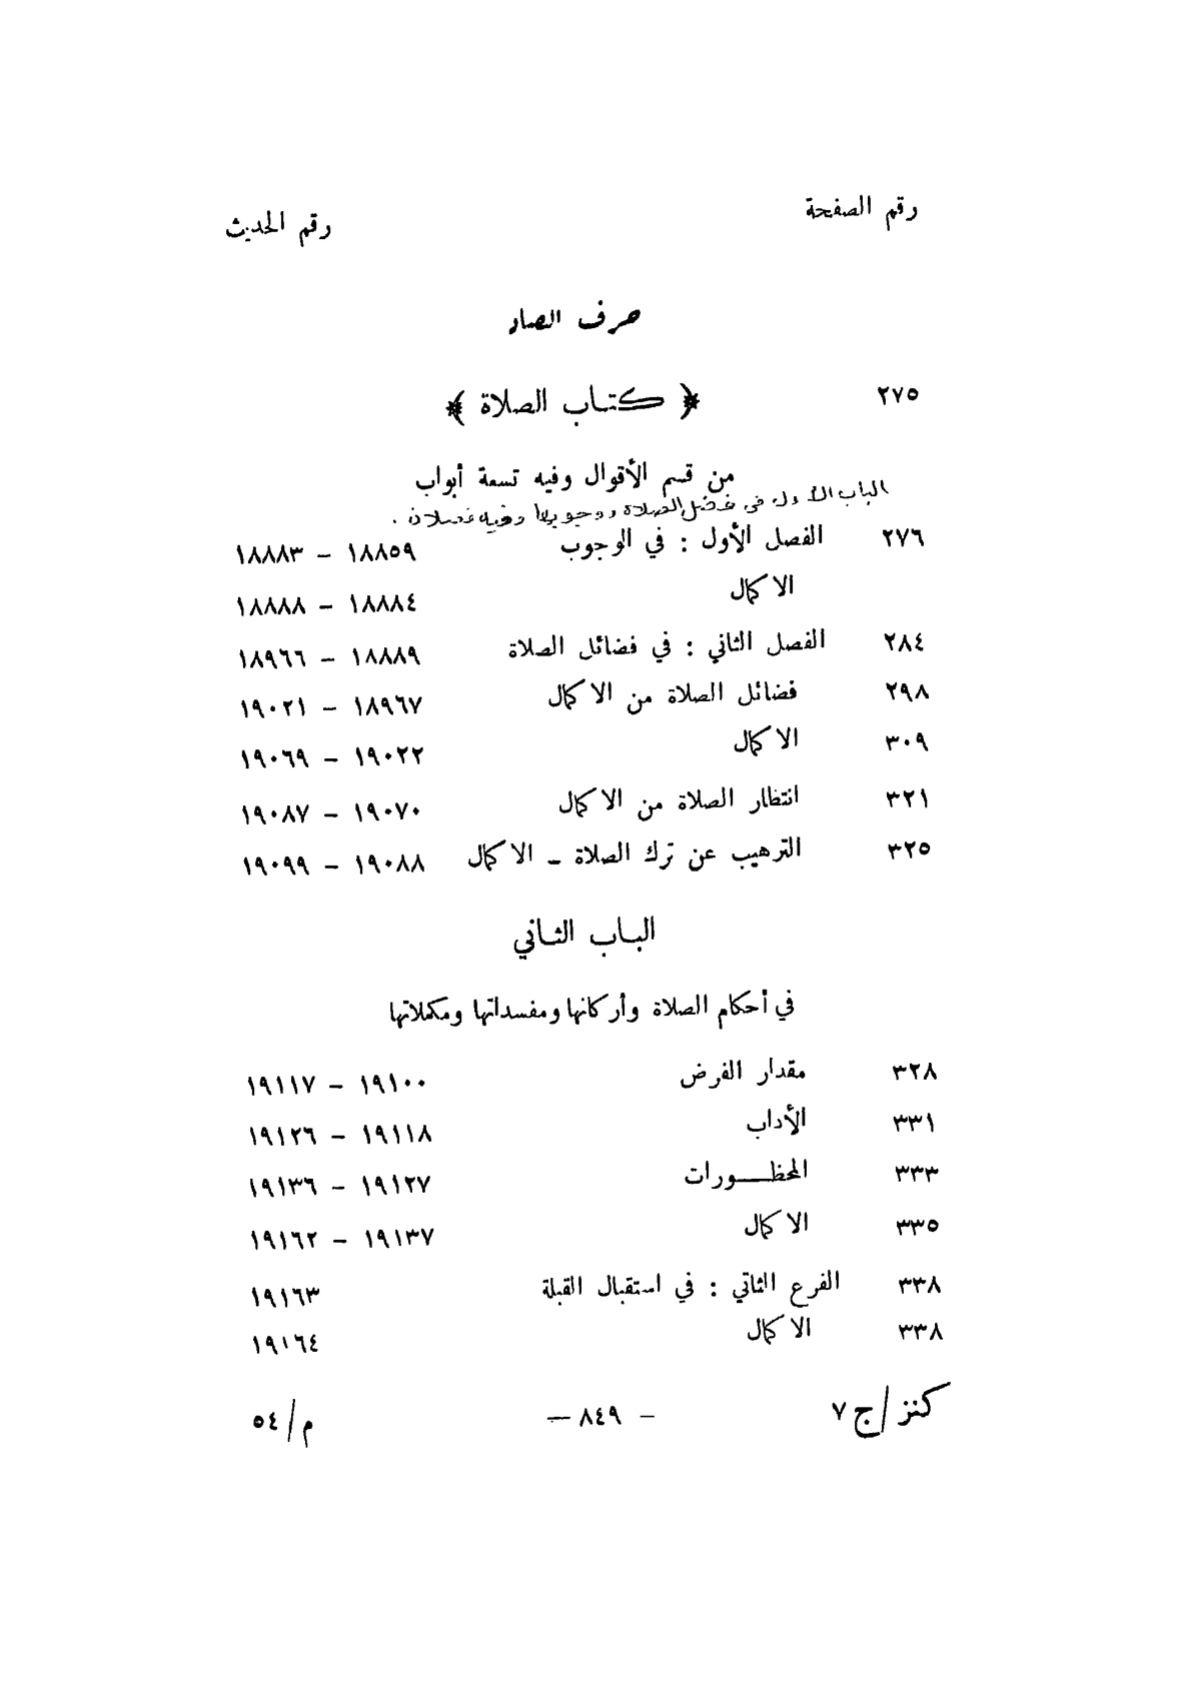 رقم الصفحة رقم الحديث
حرف الصاد
٢٧٥ ﴿ كتاب الصلاة ﴾
من قسم الأقوال وفيه تسعة أبواب
الباب الأول في فضل الصلاة ووجوبها وفيه فصلان .
٢٧٦ الفصل الأول : في الوجوب ١٨٨٥٩ – ١٨٨٨٣
الاكمال ١٨٨٨٤ – ١٨٨٨٨
٢٨٤ الفصل الثاني : في فضائل الصلاة ١٨٨٨٩ – ١٨٩٦٦
٢٩٨ فضائل الصلاة من الاكمال ١٨٩٦٧ – ١٩٠٢١
٣٠٩ الاكمال ١٩٠٢٢ – ١٩٠٦٩
٣٢١ انتظار الصلاة من الاكمال ١٩٠٧٠ – ١٩٠٨٧
٣٢٥ الترهيب عن ترك الصلاة – الاكمال ١٩٠٨٨ – ١٩٠٩٩
الباب الثاني
في أحكام الصلاة وأركانها ومفسداتها ومكملاتها
٣٢٨ مقدار الفرض ١٩١٠٠ – ١٩١١٧
٣٣١ الأداب ١٩١١٨ – ١٩١٢٦
٣٣٣ المحظـــورات ١٩١٢٧ – ١٩١٣٦
٣٣٥ الاكمال ١٩١٣٧ – ١٩١٦٢
٣٣٨ الفرع الثاني : في استقبال القبلة ١٩١٦٣
٣٣٨ الاكمال ١٩١٦٤
كنز/ج ٧ – ٨٤٩ – م/٥٤